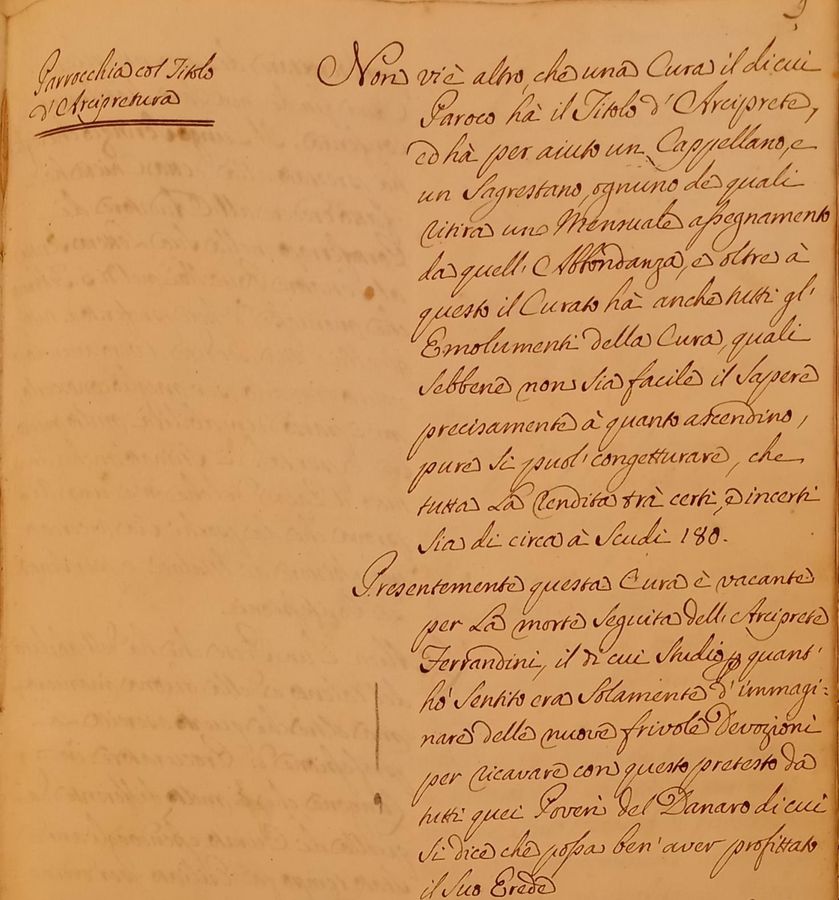 9
Parrocchia col Titolo
d'Arcipretura
Non vi è altro, che una Cura il di cui
Paroco hà il Titolo d'Arciprete,
ed hà per aiuto un Cappellano, e
un Sagrestano, ognuno de quali
ritira un Mensuale assegnamento
da quell'Abbondanza, e oltre à
questo il Curato hà anche tutti gl'
Emolumenti della Cura, quali
sebbene non sia facile il sapere
precisamente à quanto ascendino,
pure si puol' congetturare, che
tutta La rendita trà certi, e incerti
sia di circa à Scudi 180.
Presentemente questa Cura è vacante
per La morte seguita dell'Arciprete
Ferrandini, il di cui Studio p quant'
hò Sentito era Solamente d'immagi-
nare delle nuove frivole Devozioni
per ricavare con questo pretesto da
tutti quei Poveri del Danaro di cui
si dice che possa ben' aver profittato
il Suo Erede